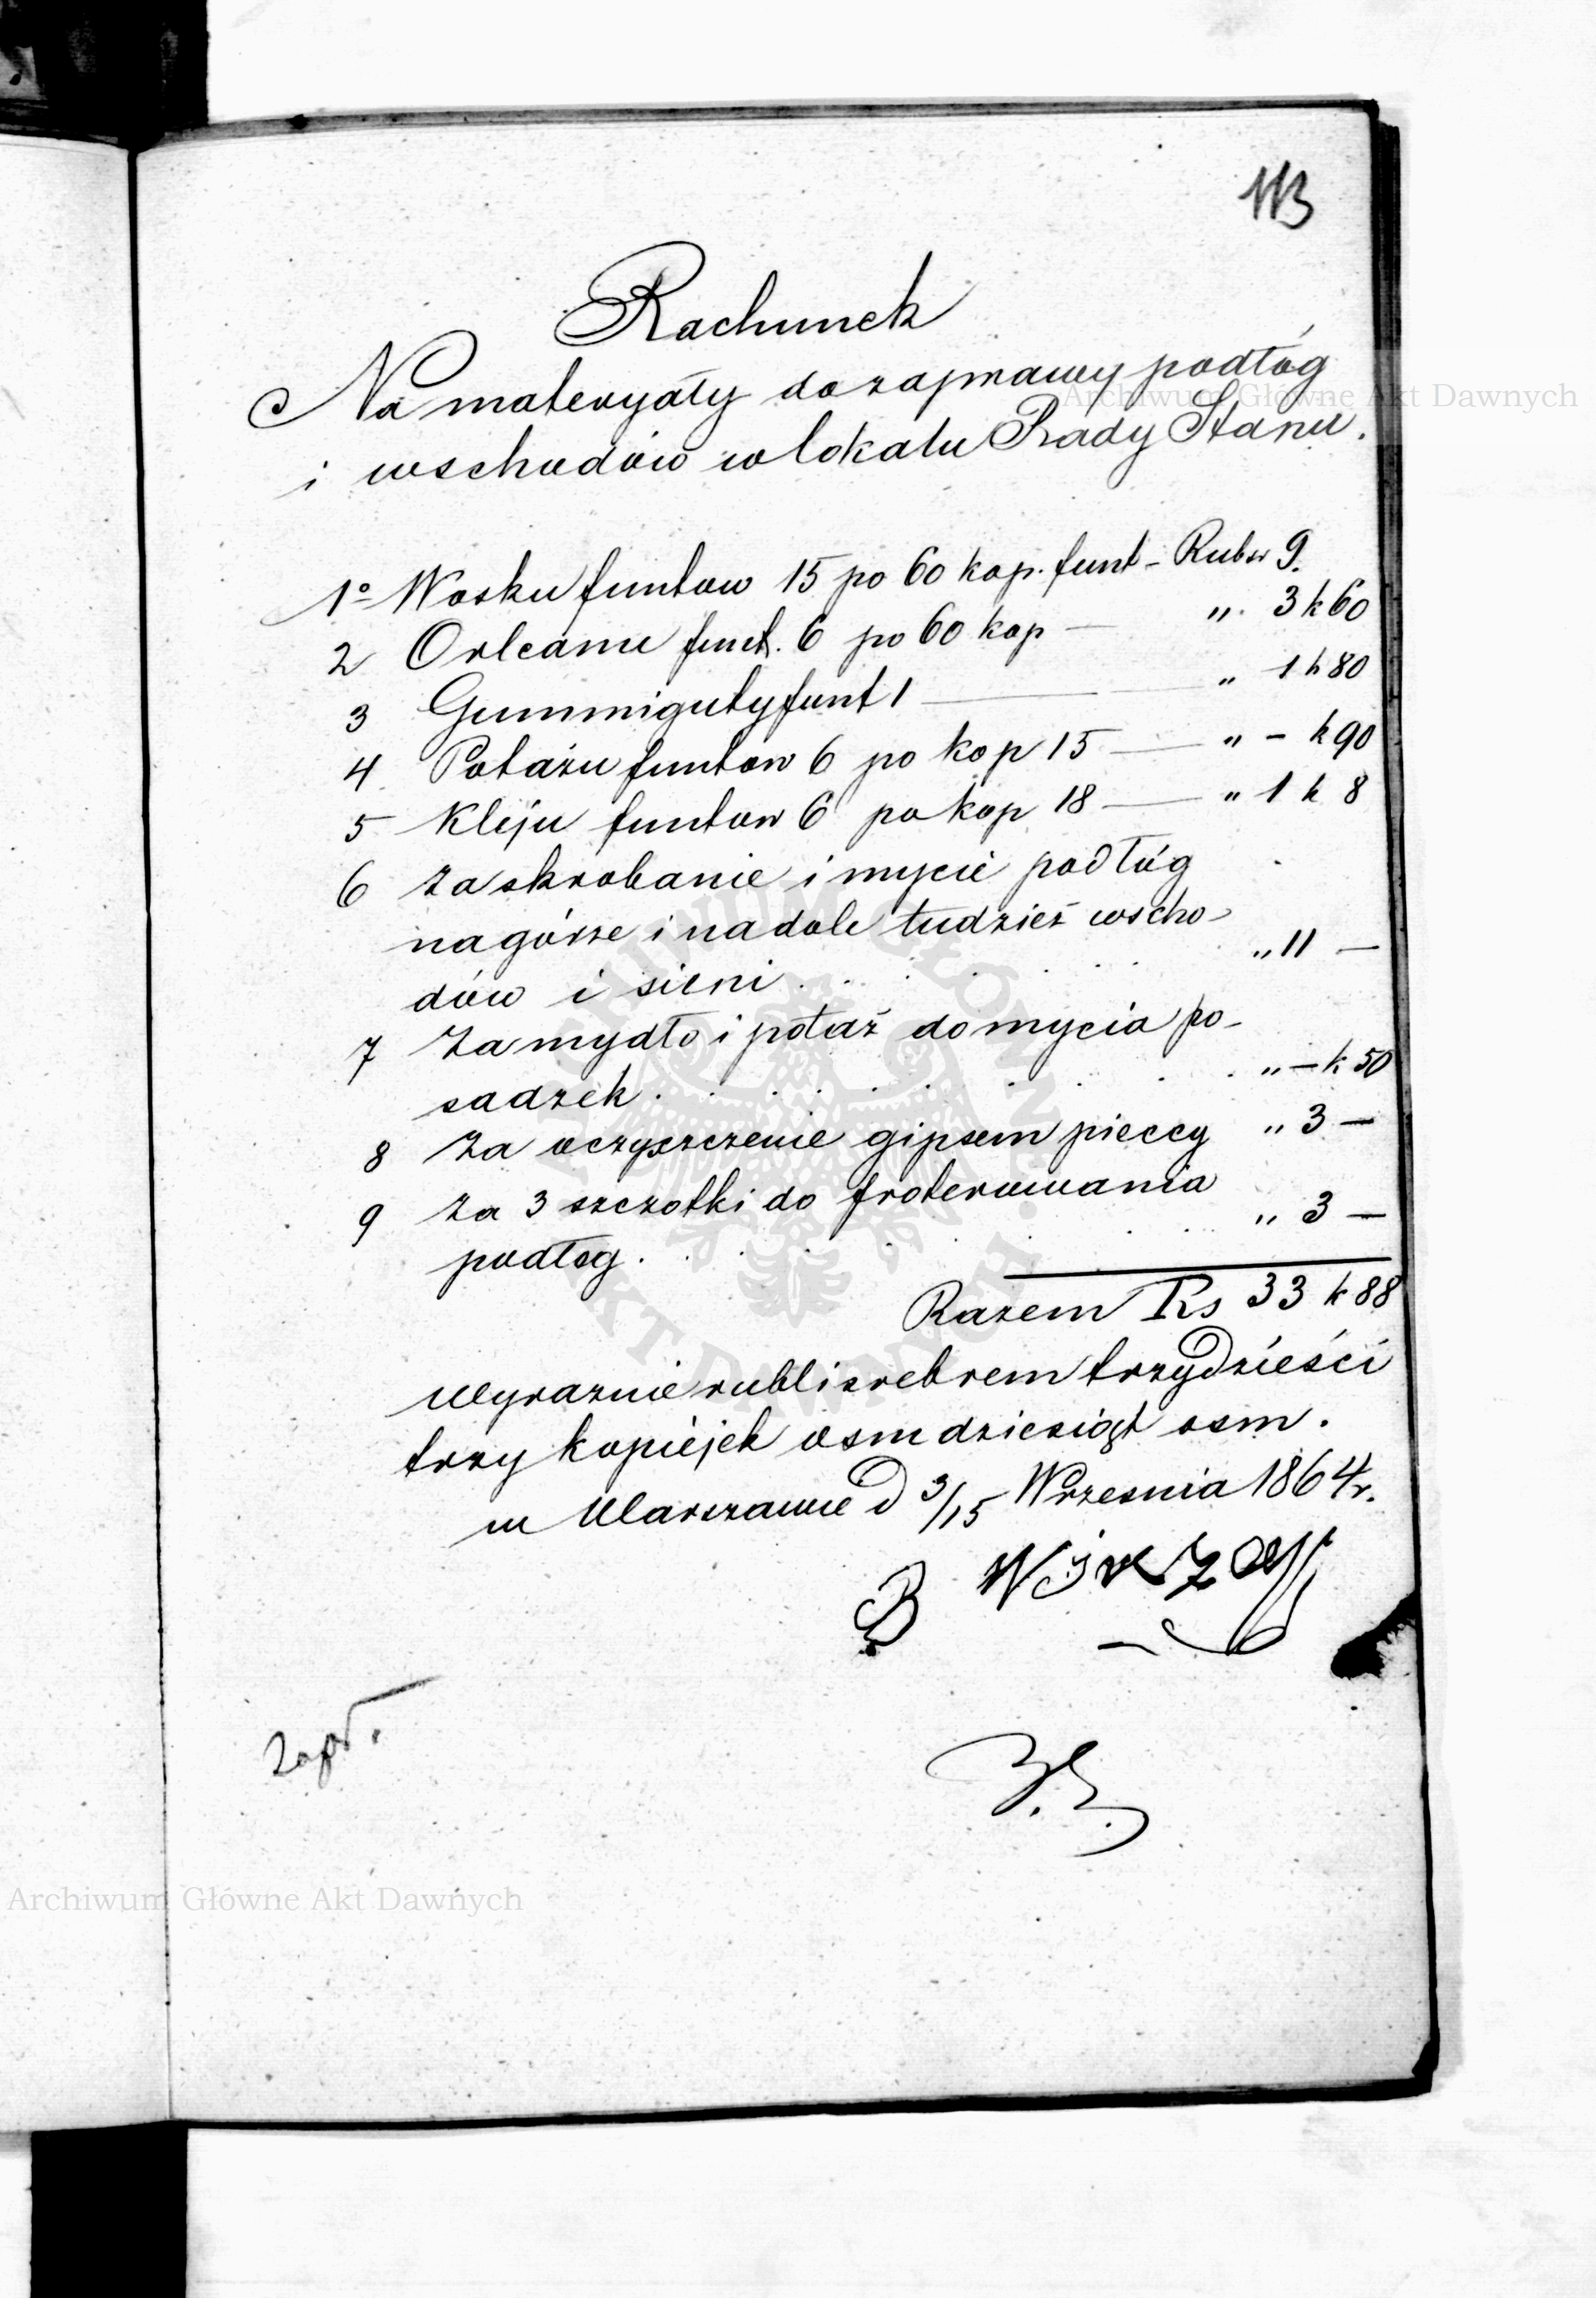 113
Rachunek
Na materyały do zaprawy podłóg
i wschodów w lokalu Rady Stanu.
1º Wosku funtow 15 po 60 kop. funt - Rubsr 9.
2 Orleanu funt. 6 po 60 kop — „ 3 k 60
3 Gummiguty funt 1 — „ 1 k 80
4 Potażu funtow 6 po kop 15 — „ - k 90
5 Kleju funtow 6 po kop 18 — „ 1 k 8
6 Za skrobanie i mycie podłóg
na górze i na dole tudzież wscho-
dów i sieni . . . . . . „ 11 —
7 Za mydło i potaż do mycia po-
sadzek . . . . . . . . „ — k 50
8 Za oczyszczenie gipsem pieccy „ 3 —
9 Za 3 szczotki do froterowania
podłog . . . . . . . „ 3 —
Razem Rs 33 k 88
Wyraznie rubli srebrem trzydzieści
trzy kopiejek osmdziesiąt osm.
w Warszawie d 3/15 Wrzesnia 1864 r.
B
Zapł.
Archiwum Główne Akt Dawnych
Archiwum Główne Akt Dawnych
ARCHIWUM GŁÓWNE
AKT DAWNYCH